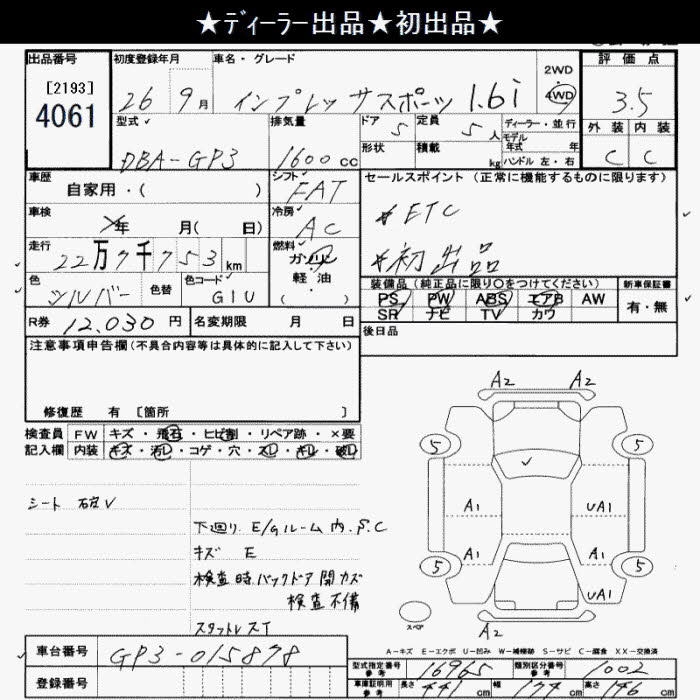 ★ディーラー出品★初出品★
出品番号 初度登録年月 車名・グレード 2WD 4WD 評価点
[2193]
4061 26 9月 インプレッサスポーツ 1.6i 3.5
型式 排気量 ドア 5 定員 5人 ディーラー・並行 外装 内装
モデル年式 年
DBA-GP3 1600cc 形状 積載 kg ハンドル 左・右 C C
車歴 シフト FAT セールスポイント (正常に機能するものに限ります)
自家用・( )
車検 年 月( 日) 冷房 AC ETC
走行 22万7千753km 燃料 ガソリン 軽油 ( ) 初出品
色 シルバー 色替 色コード G1U 装備品 (純正品に限り○をつけてください) 新車保証書
PS PW ABS エアB AW 有・無
SR ナビ TV カワ
R券 12,030円 名変期限 月 日 後日品
注意事項申告欄(不具合内容等は具体的に記入して下さい)
修復歴 有 [箇所 ]
検査員 FW キズ・飛石・ヒビ割・リペア跡・×要
記入欄 内装 キズ・汚レ・コゲ・穴・スレ・キレ・破レ
シート
下廻り E/Gルーム内 P.C
キズ E
検査時バックドア開カズ
検査不備
スタットレス
A2 A2
5 5
A1 UA1
A1 A1
5 5
UA1
スペア A2
A-キズ E-エクボ U-凹み W-補修跡 S-サビ C-腐食 XX-交換済
車台番号 GP3-015878
型式指定番号 参考 16965 類別区分番号 参考 1002
登録番号
車庫証明用 参考 長さ 441cm 幅 174cm 高さ 146cm